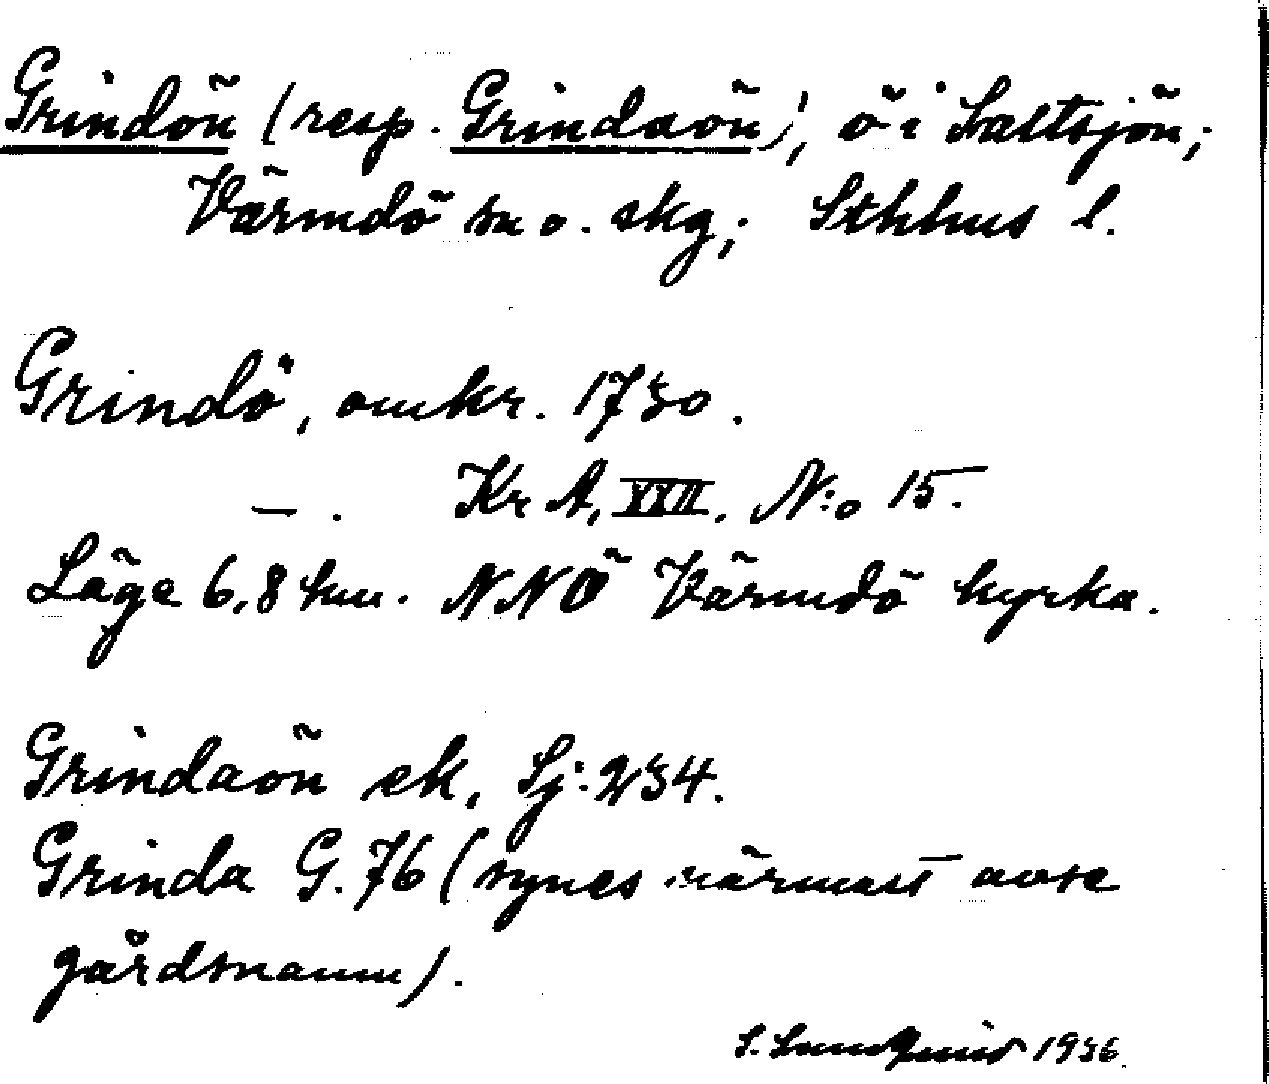 Grindön (resp. Grindaön), ö i Saltsjön;
Värmdö sn o. skg; Sthlms l.
Grindö, omkr. 1730.
— . Kr A, XXII. N:o 15.
Läge 6,8 km. NNÖ Värmdö kyrka.
Grindaön ek, Sj: 234.
Grinda G. 76 (synes närmast avse
gårdsnamn).
S. Lundquist 1936.